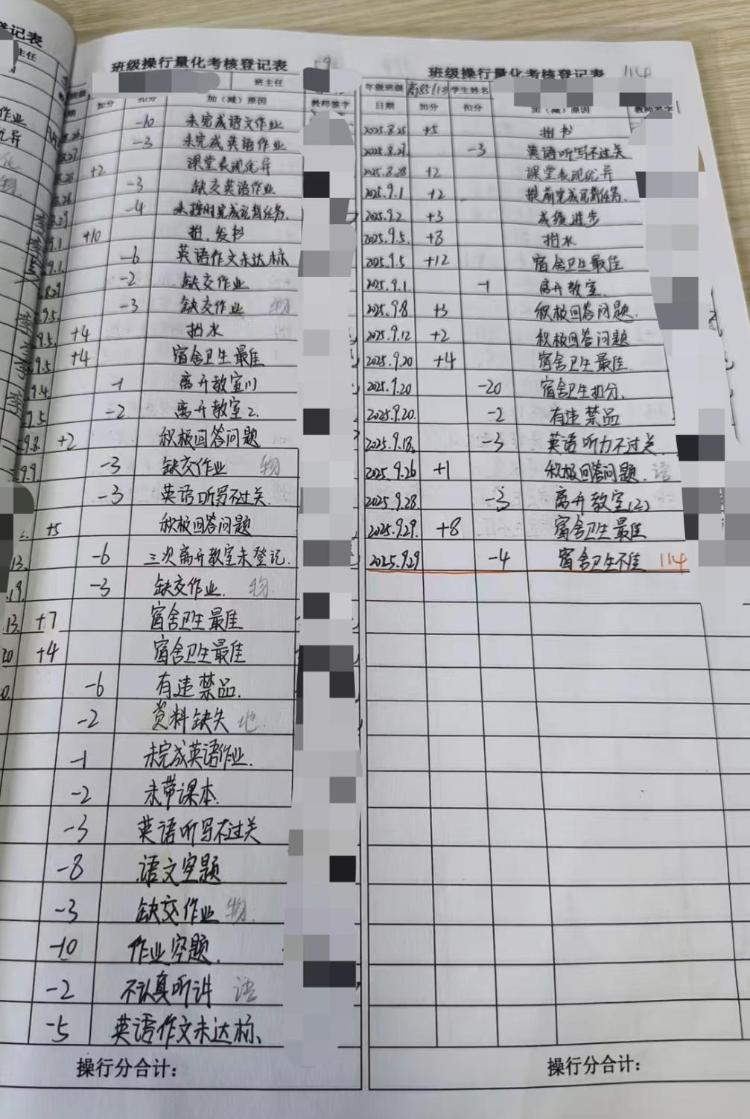 记表
主任
作业
优异
班级操行量化考核登记表
班主任
加分 扣分 加（减）原因 教师签字
-10 未完成语文作业
-3 未完成英语作业
+2 课堂表现优异
-3 缺交英语作业
-4 未按时完成元育任务
+10 担、发书
-6 英语作文未达标
-2 缺交作业
-3 缺交作业 物
+4 担水
+4 宿舍卫生最佳
-1 离开教室(1)
-2 离开教室2.
9.8. +2 积极回答问题
9.9. -3 缺交作业 物
-3 英语听写不过关.
+5 积极回答问题
13. -6 三次离开教室未登记.
19. -3 缺交作业. 物
13. +7 宿舍卫生最佳
20 +4 宿舍卫生最佳
-6 有违禁品.
-2 资料缺失 地
-1 未完成英语作业.
-2 未带课本.
-3 英语听写不过关
-8 语文空题
-3 缺交作业 物.
-10 作业空题.
-2 不认真听讲 语
-5 英语作文未达标、
操行分合计：
班级操行量化考核登记表 114
年级班级 学生姓名
日期 加分 扣分 加（减）原因 教师签字
2025.8.25 +5 担书
2025.8.27. -3 英语听写不过关
2025.8.28 +2 课堂表现优异
2025.9.1 +2 提前完成元育任务.
2025.9.2 +3 成绩进步
2025.9.5. +8 担水
2025.9.5 +12 宿舍卫生最佳
2025.9.1 -1 离开教室.
2025.9.8 +3 积极回答问题.
2025.9.12 +2 积极回答问题
2025.9.20 +4 宿舍卫生最佳
2025.9.20 -20 宿舍卫生扣分.
2025.9.20. -2 有违禁品
2025.9.18. -3 英语听力不过关.
2025.9.26 +1 积极回答问题. 语
2025.9.28 -3 离开教室(2)
2025.9.29. +8 宿舍卫生最佳
2025.9.29 -4 宿舍卫生不佳 114
操行分合计：